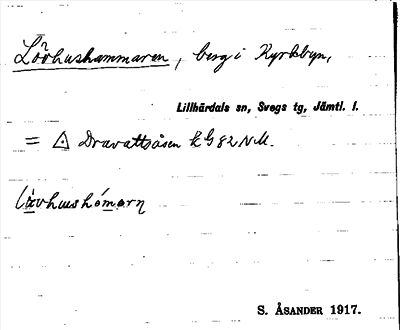 Lövhushammaren, berg i Kyrkbyn,
Lillhärdals sn, Svegs tg, Jämtl. l.
= △ Dravattsåsen k G 82 N M.
S. ÅSANDER 1917.